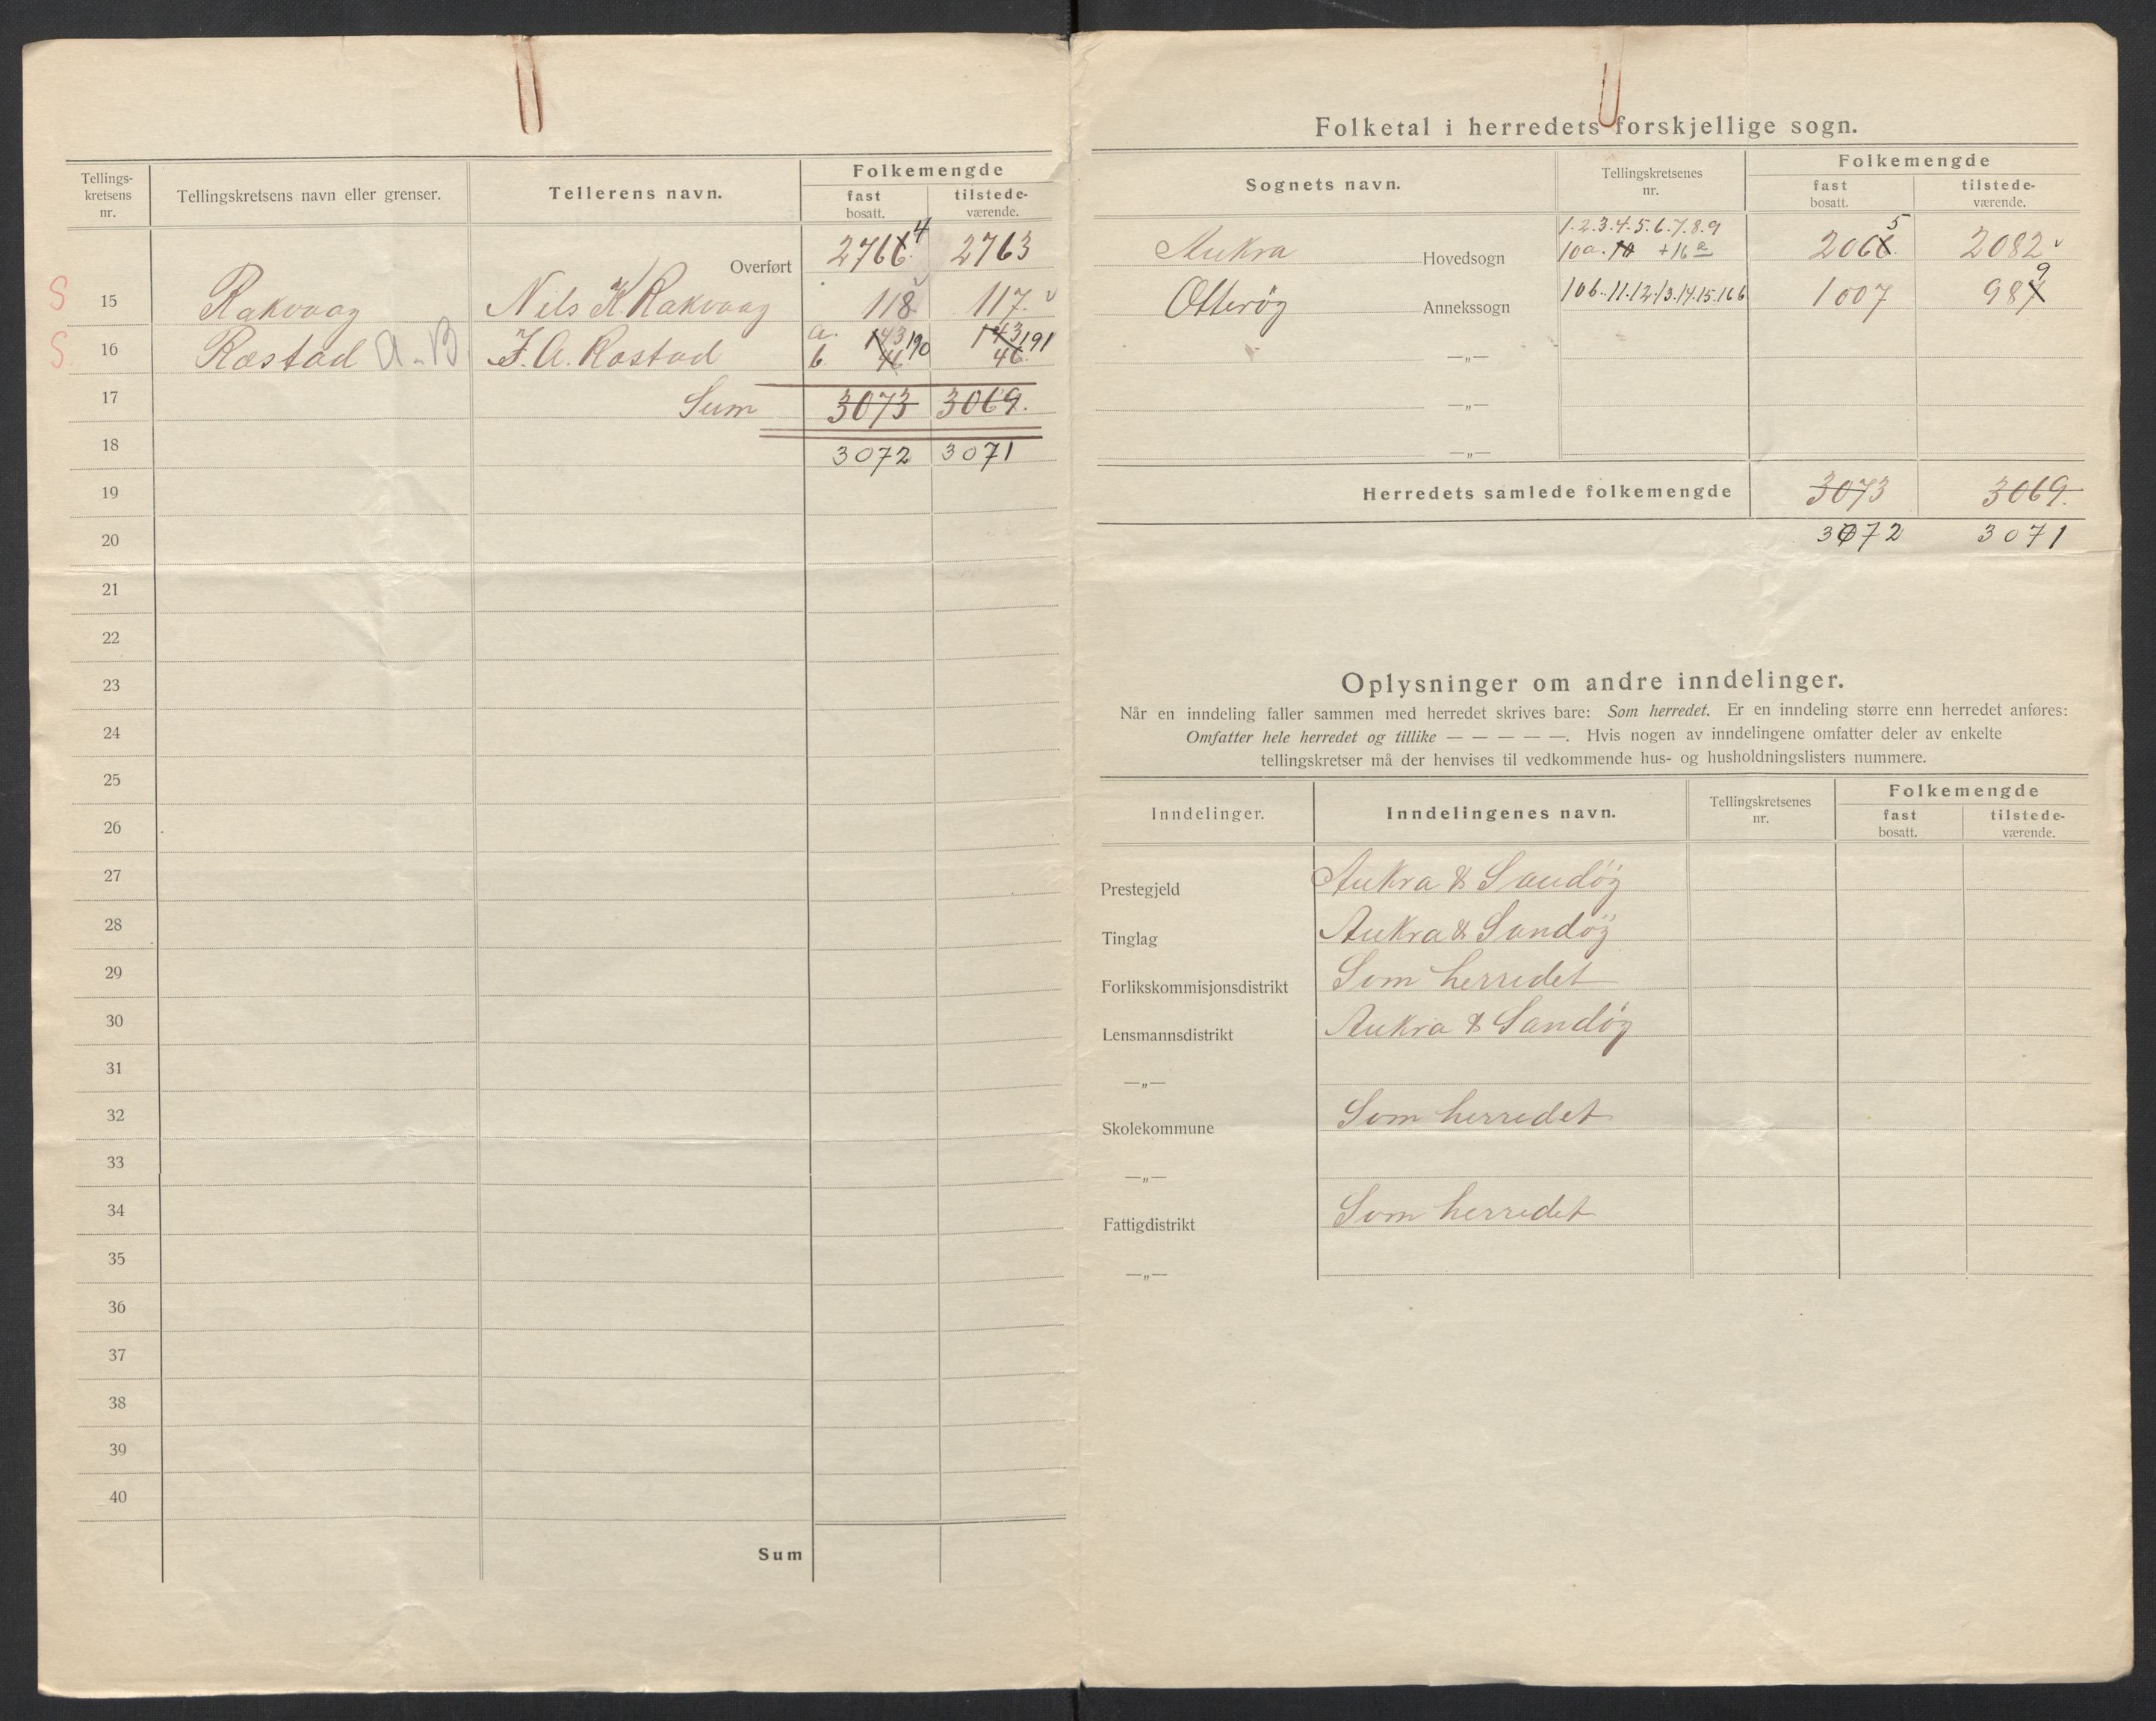 Tellings-
kretsens
nr.
Tellingskretsens navn eller grenser.
Tellerens navn.
Folkemengde
fast
bosatt.
tilstede-
værende.
Overført 2766 4 2763
S 15 Rakvaag Nils K. Rakvaag 118 117. v
S. 16 Rastad A-B J. A. Rastad a. 143 190 143 191
b. 46 46.
17 Sum 3073 3069.
18 3072 3071
19
20
21
22
23
24
25
26
27
28
29
30
31
32
33
34
35
36
37
38
39
40
Sum
Folketal i herredets forskjellige sogn.
Sognets navn.
Tellingskretsenes
nr.
Folkemengde
fast
bosatt.
tilstede-
værende.
1.2.3.4.5.6.7.8.9
Aukra Hovedsogn 10a. + 16a 2066. 5 2082 v
Otterøy Annekssogn 10b.11.12.13.14.15.16b 1007 987 9
—„—
—„—
—„—
Herredets samlede folkemengde 3073 3069.
3072 3071
Oplysninger om andre inndelinger.
Når en inndeling faller sammen med herredet skrives bare: Som herredet. Er en inndeling større enn herredet anføres:
Omfatter hele herredet og tillike — — — — —. Hvis nogen av inndelingene omfatter deler av enkelte
tellingskretser må der henvises til vedkommende hus- og husholdningslisters nummere.
Inndelinger.
Inndelingenes navn.
Tellingskretsenes
nr.
Folkemengde
fast
bosatt.
tilstede-
værende.
Prestegjeld Aukra & Sandøy
Tinglag Aukra & Sandøy
Forlikskommisjonsdistrikt Som herredet
Lensmannsdistrikt Aukra & Sandøy
—„—
Skolekommune Som herredet
—„—
Fattigdistrikt Som herredet
—„—